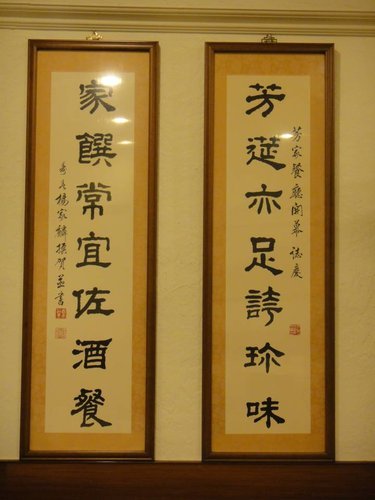 芳家餐廳開幕 誌慶
芳筵亦足誇珍味
家饌常宜佐酒餐
楊家麟撰賀並書